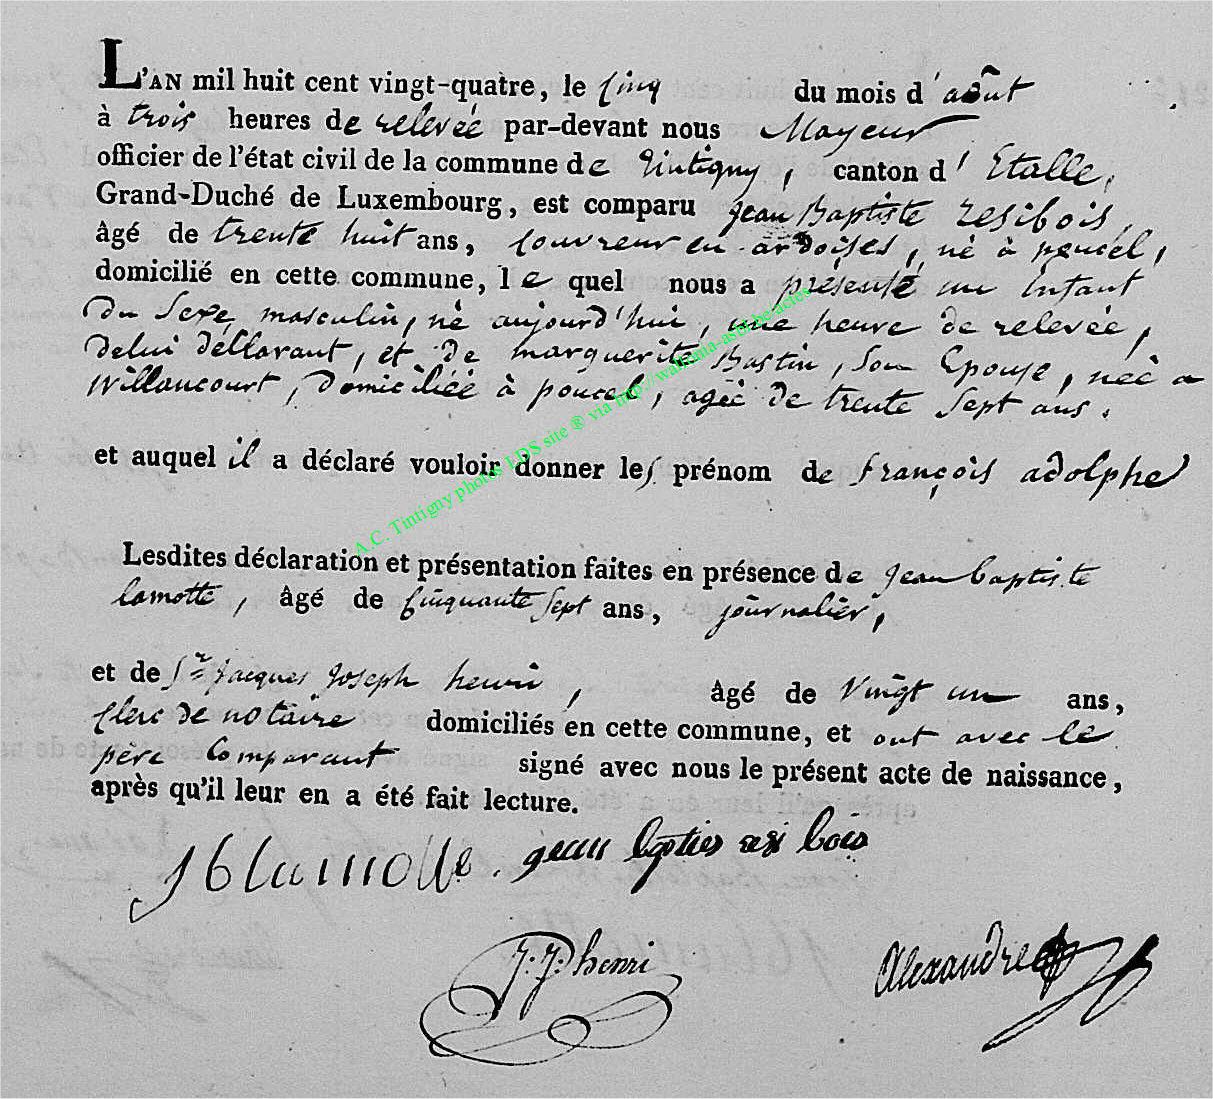 L'AN mil huit cent vingt-quatre, le cinq du mois d'août
à trois heures de relevée par-devant nous Mayeur
officier de l'état civil de la commune de Tintigny, canton d'Etalle,
Grand-Duché de Luxembourg, est comparu Jean Baptiste resibois,
âgé de trente huit ans, couvreur en ardoises, né à poncel,
domicilié en cette commune, le quel nous a présenté un Enfant
du Sexe masculin, né aujourd'hui, une heure de relevée,
de lui déclarant, et de marguerite Bastin, son Epouse, née a
Willancourt, domiciliée à poncel, agée de trente Sept ans.
et auquel il a déclaré vouloir donner les prénom de françois adolphe
Lesdites déclaration et présentation faites en présence de Jean baptiste
lamotte, âgé de Cinquante Sept ans, journalier,
et de Sr Jacques Joseph henri, âgé de Vingt un ans,
Clerc de notaire domiciliés en cette commune, et ont avec le
père Comparant signé avec nous le présent acte de naissance,
après qu'il leur en a été fait lecture.
J b lamotte. jean bpties resi bois
J: J: henri Alexandre
A.C. Tintigny photos LDS site ® via http://wallonia-asbl.be/actes